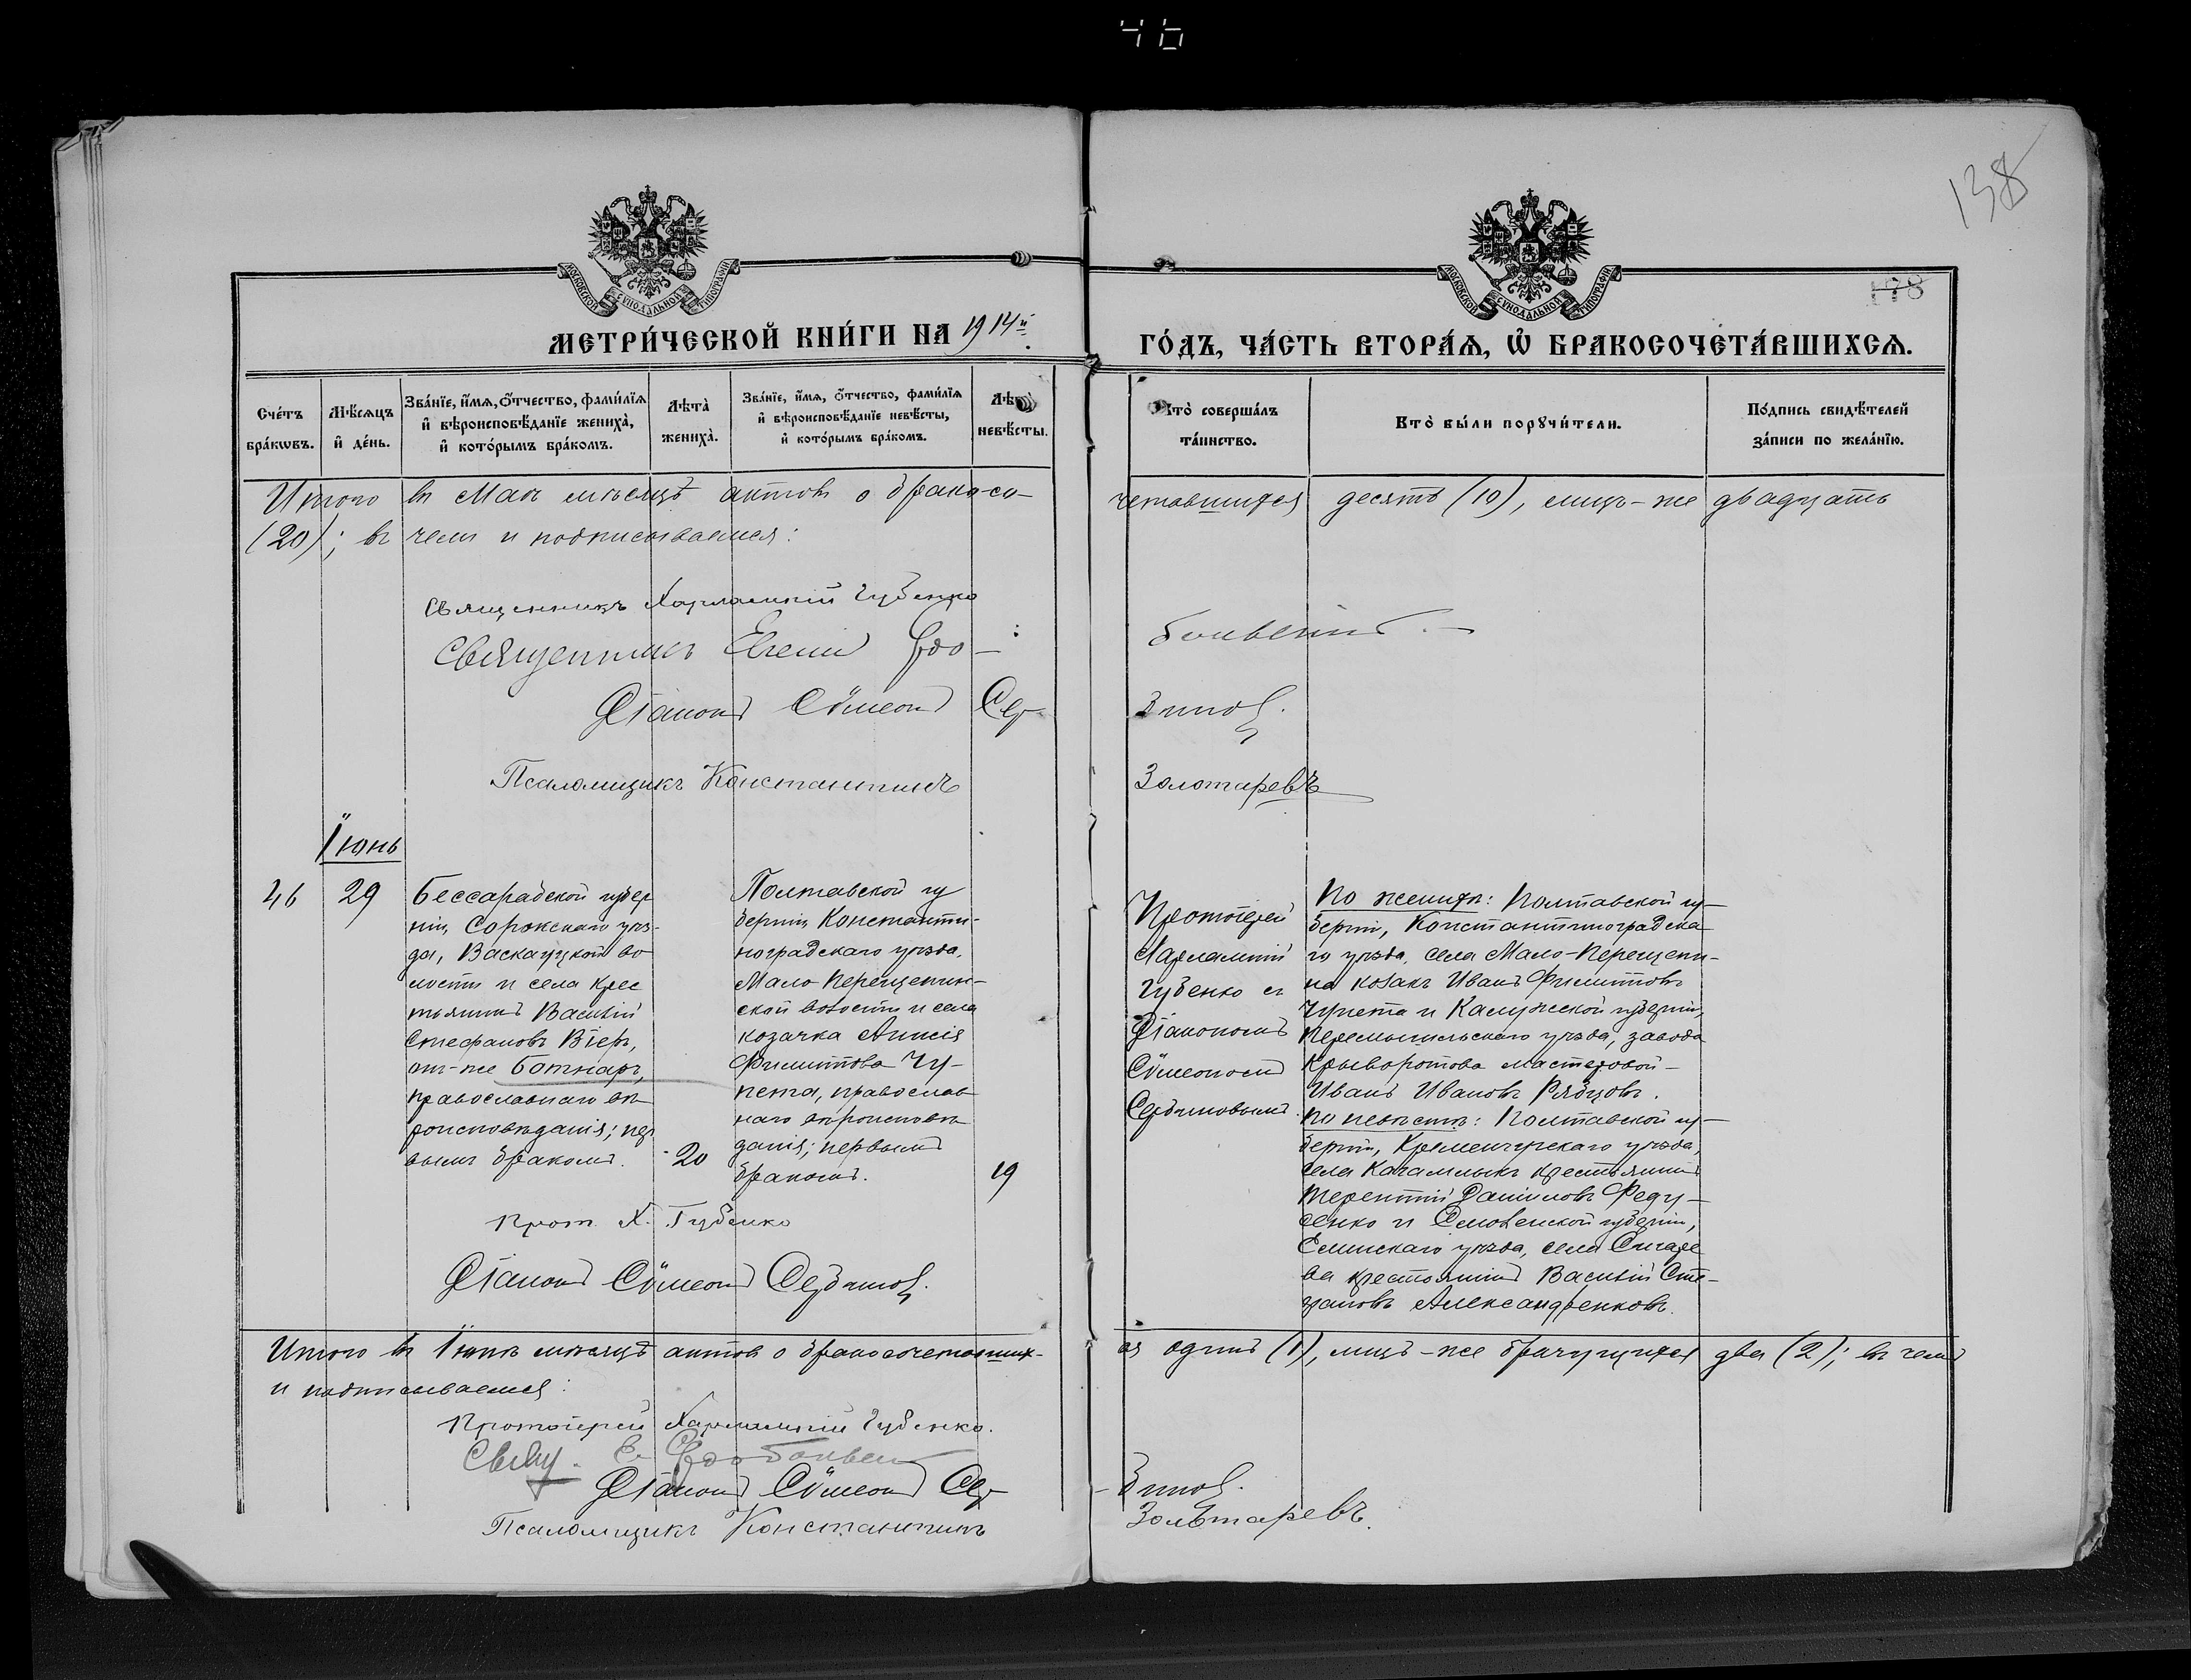 46
138
178
МОСКОВСКОЙ СѴНОДАЛЬНОЙ ТИПОГРАФІИ
МОСКОВСКОЙ СѴНОДАЛЬНОЙ ТИПОГРАФІИ
МЕТРИ́ЧЕСКОЙ КНИ́ГИ НА 1914й
ГО́ДЪ, ЧА́СТЬ ВТОРА́Ѧ, Ѡ҆ БРАКОСОЧЕТА́ВШИХСѦ.
Сче́тъ бра́кѡвъ.
Мѣ́сѧцъ и҆ де́нь.
Зва́нїе, и҆́мѧ, ѻ҆́тчество, фами́лїѧ и҆ вѣроисповѣ́данїе жениха̀, и҆ кото́рымъ бра́комъ.
Лѣта̀ жениха̀.
Зва́нїе, и҆́мѧ, ѻ҆́тчество, фами́лїѧ и҆ вѣроисповѣ́данїе невѣ́сты, и҆ кото́рымъ бра́комъ.
невѣ́сты.
Кто̀ соверша́лъ та́инство.
Кто̀ бы́ли порꙋчи́тели.
По́дпись свидѣ́телей за́писи по жела́нїю.
Итого въ Маѣ мѣсяцѣ актовъ о бракосо-
четавшихся десять (10), лицъ-же двадцать
(20); въ чемъ и подписываемся:
Священникъ Харлампій Губенко
Священникъ Евгеній
Діаконъ Сѵмеонъ Сер-
Псаломщикъ Константинъ
Золотаревъ
Іюнь
46
29
Бессарабской губер
ніи, Сорокскаго уѣз-
да, Васкауцкой во
лости и села крес
тьянинъ Василій
Стефановъ Віеръ,
онъ-же Ботнаръ,
православнаго вѣ
роисповѣданія; пер
вымъ бракомъ.
20
Полтавской гу
берніи, Константи-
ноградскаго уѣзда,
Мало-Перещепин-
ской волости и села
козачка Анисія
Филиппова Чу-
пета, православ
наго вѣроисповѣ
данія; первымъ
бракомъ.
19
Протоіерей
Харлампій
Губенко съ
Діакономъ
Сѵмеономъ
По женихѣ: Полтавской гу-
берніи, Константиноградска
го уѣзда, села Мало-Перещепи-
на козакъ Иванъ Филипповъ
Чупета и Калужской губерніи,
Перемышльскаго уѣзда, завода
мастеровой
Иванъ Ивановъ Рябцовъ.
по невѣстѣ: Полтавской гу-
берніи, Кременчугскаго уѣзда,
села Качамлыкъ крестьянинъ
Терентій Даниловъ Феду-
сенко и Смоленской губерніи,
Ельнинскаго уѣзда, села
крестьянинъ Василій Сте-
пановъ Александренковъ.
Прот. Х. Губенко
Діаконъ Сѵмеонъ
Итого въ Іюнѣ мѣсяцѣ актовъ о бракосочетавших-
ся одинъ (1), лицъ-же брачущихся два (2); въ чемъ
и подписываемся:
Протоіерей Харлампій Губенко.
Діаконъ Сѵмеонъ Сер-
Псаломщикъ Константинъ
Золотаревъ.